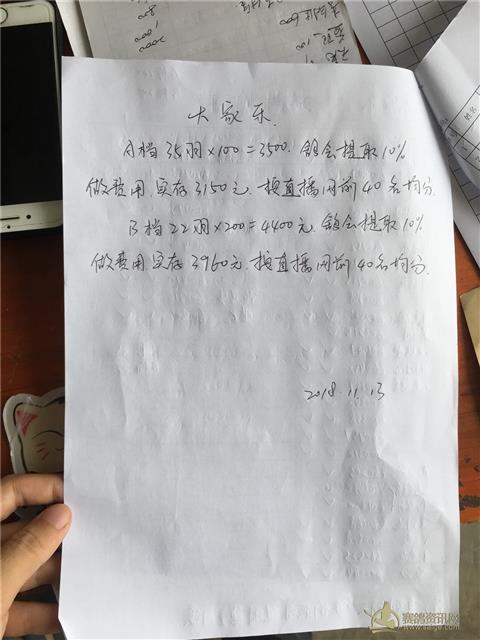 大家乐.
A档35羽×100=3500. 鸽会提取10%
做费用.实存3150元.按直播网前40名均分.
B档22羽×200=4400元.鸽会提取10%
做费用实存3960元.按直播网前40名均分.
2018.11.13
赛鸽资讯网